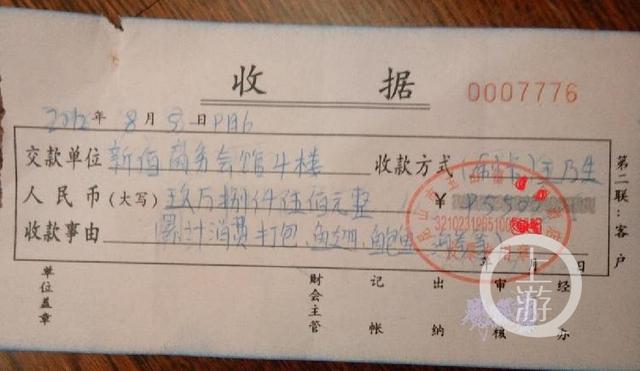 收据
0007776
2012年8月5日
交款单位 新佰商务会馆4楼 收款方式
人民币(大写) 玖万捌仟伍佰元整 ¥
收款事由 累计消费打包、鱼翅、鲍鱼
第二联:客户
年 月 日
单位盖章 财会主管 记帐 出纳 审核 经办
上游